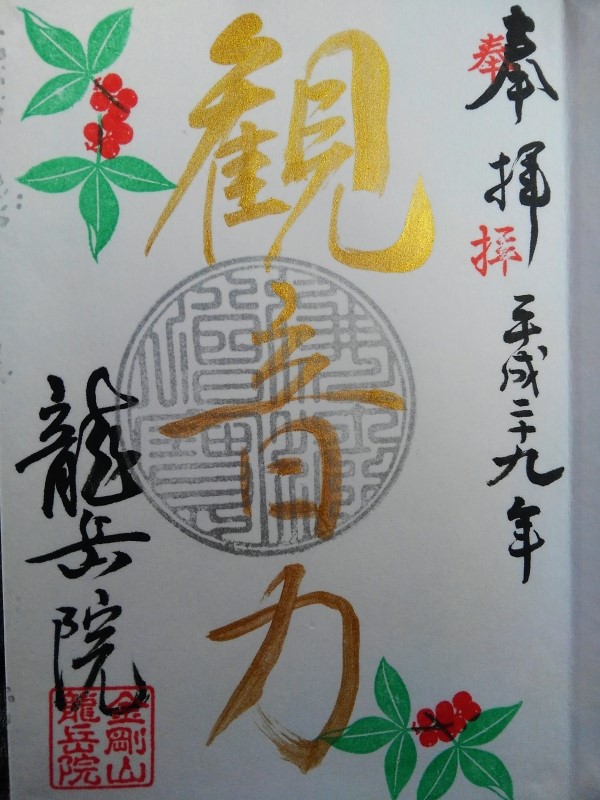 奉拝 平成二十九年
奉拝
観音力
龍岳院
金剛山
龍岳院